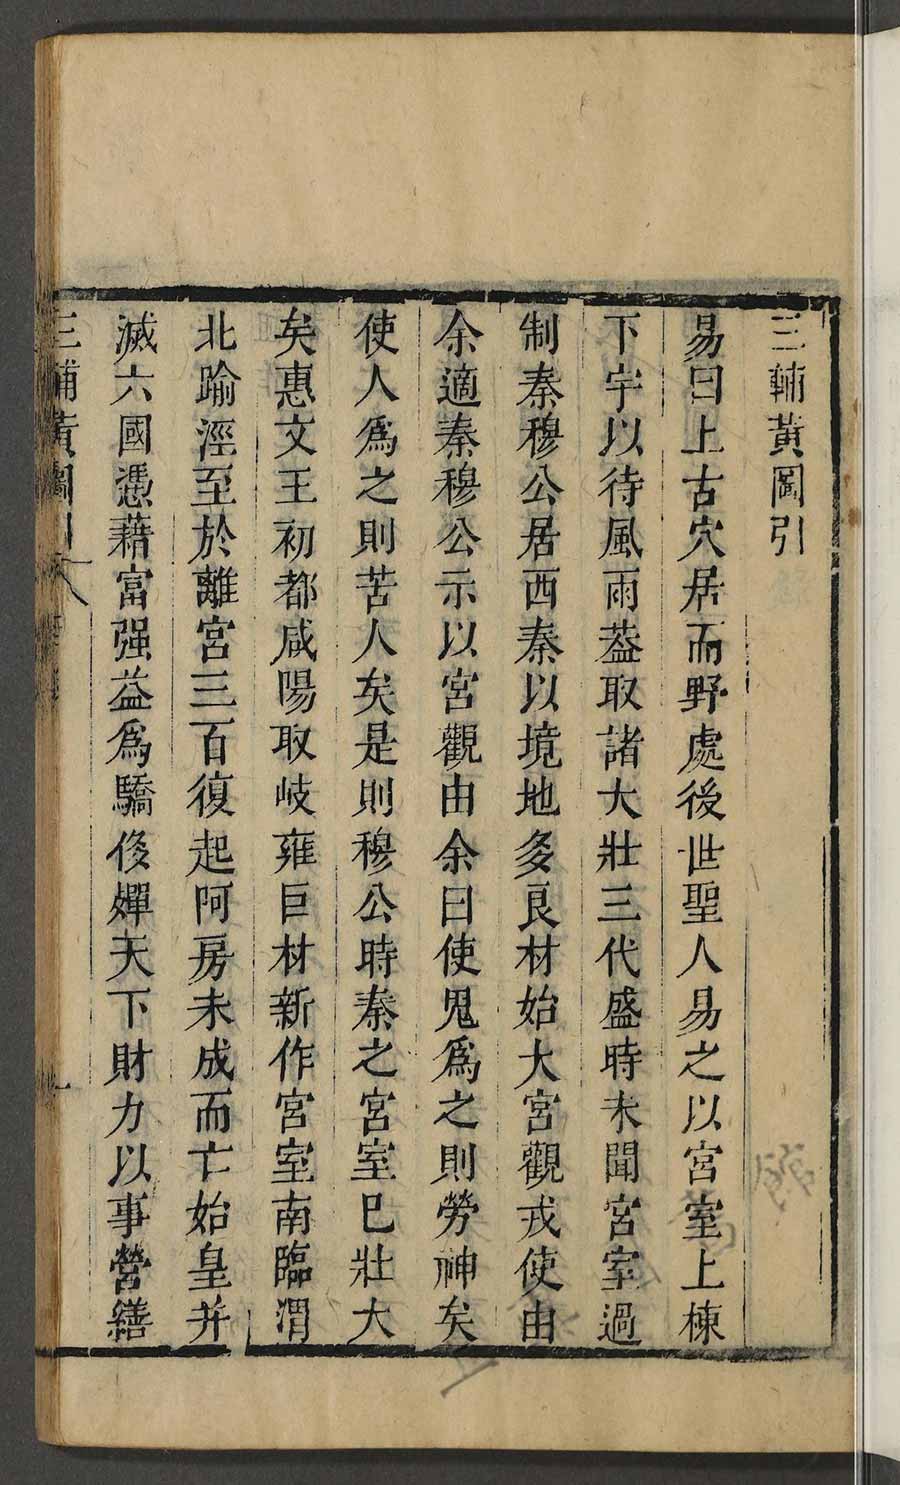 三輔黃圖引
易曰上古穴居而野處後世聖人易之以宮室上棟
下宇以待風雨葢取諸大壯三代盛時未聞宮室過
制秦穆公居西秦以境地多良材始大宮觀戎使由
余適秦穆公示以宮觀由余曰使鬼爲之則勞神矣
使人爲之則苦人矣是則穆公時秦之宮室已壯大
矣惠文王初都咸陽取岐雍巨材新作宮室南臨渭
北踰涇至於離宮三百復起阿房未成而亡始皇并
滅六國憑藉富强益爲驕侈殫天下財力以事營繕
三輔黃圖引